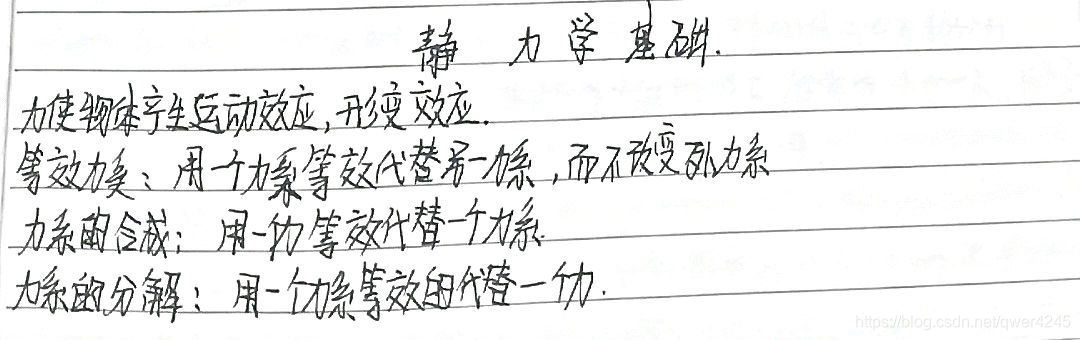 静 力 学 基 础.
力使物体产生运动效应,形变效应.
等效力系：用一个力系等效代替另一力系,而不改变原力系
力系的合成：用一力等效代替一个力系.
力系的分解：用一个力系等效的代替一个力.
https://blog.csdn.net/qwer4245